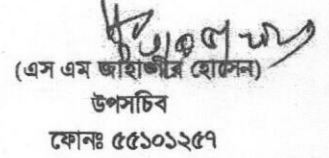 (এস এম জাহাঙ্গীর হোসেন)
উপসচিব
ফোনঃ ৫৫১০১২৫৭